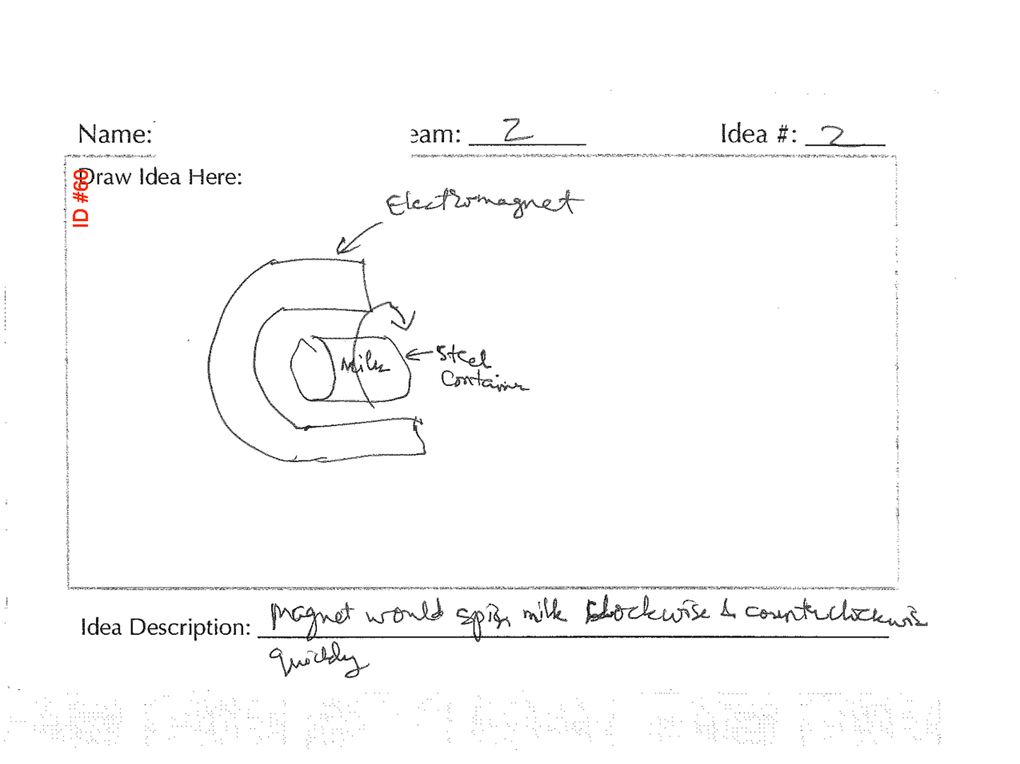 Name: eam: 2 Idea #: 2
ID #60
Draw Idea Here:
Electromagnet
Milk
Steel
Container
Idea Description: Magnet would spin milk clockwise & counterclockwise
quickly